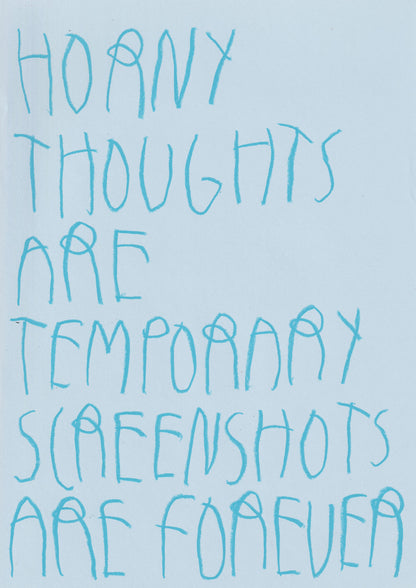 HORNY
THOUGHTS
ARE
TEMPORARY
SCREENSHOTS
ARE FOREVER